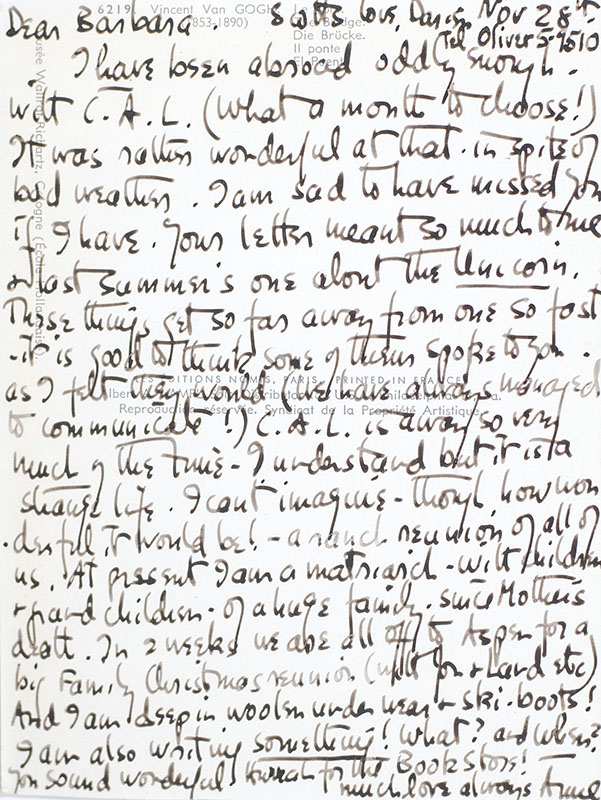 6219. Vincent Van GOGH
(1853-1890)
Die Brücke.
Il ponte
Dear Barbara. Scotts Cove, Darien, Nov 28th
Tel Oliver 5-9510
I have been abroad oddly enough.
with C.A.L. (What a month to choose!)
It was rather wonderful at that - in spite of
bad weather. I am sad to have missed you
if I have. Your letter meant so much to me
& last summer's one about the Unicorn.
These things get so far away from one so fast
- it is good to think some of them spoke to you.
as I felt they would (we have always managed
to communicate!) C.A.L. is away so very
much of the time - I understand but it is a
strange life. I can't imagine - though how won
derful it would be! - a ranch reunion of all of
us. At present I am a matriarch - with children
& grandchildren - of a huge family. since Mother's
death. In 2 weeks we are all off to Aspen for a
big Family Christmas reunion (with Jon & Land etc)
And I am deep in woolen underwear & ski-boots!
I am also writing something! What? and when?
You sound wonderful - Hurrah for the Book Store!
much love always Anne
Musée Wallraf-Richartz, Cologne (École Hollandaise).
LES ÉDITIONS NOMIS, PARIS - PRINTED IN FRANCE
Reproduction réservée. Syndicat de la Propriété Artistique